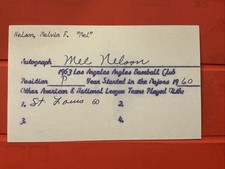 Nelson, Melvin F. "Mel"
Autograph Mel Nelson
1963 Los Angeles Angles Baseball Club
Position P Year Started in the Majors 1960
Other American & National League Teams Played With:
1. St. Louis 60 3.
2. 4.